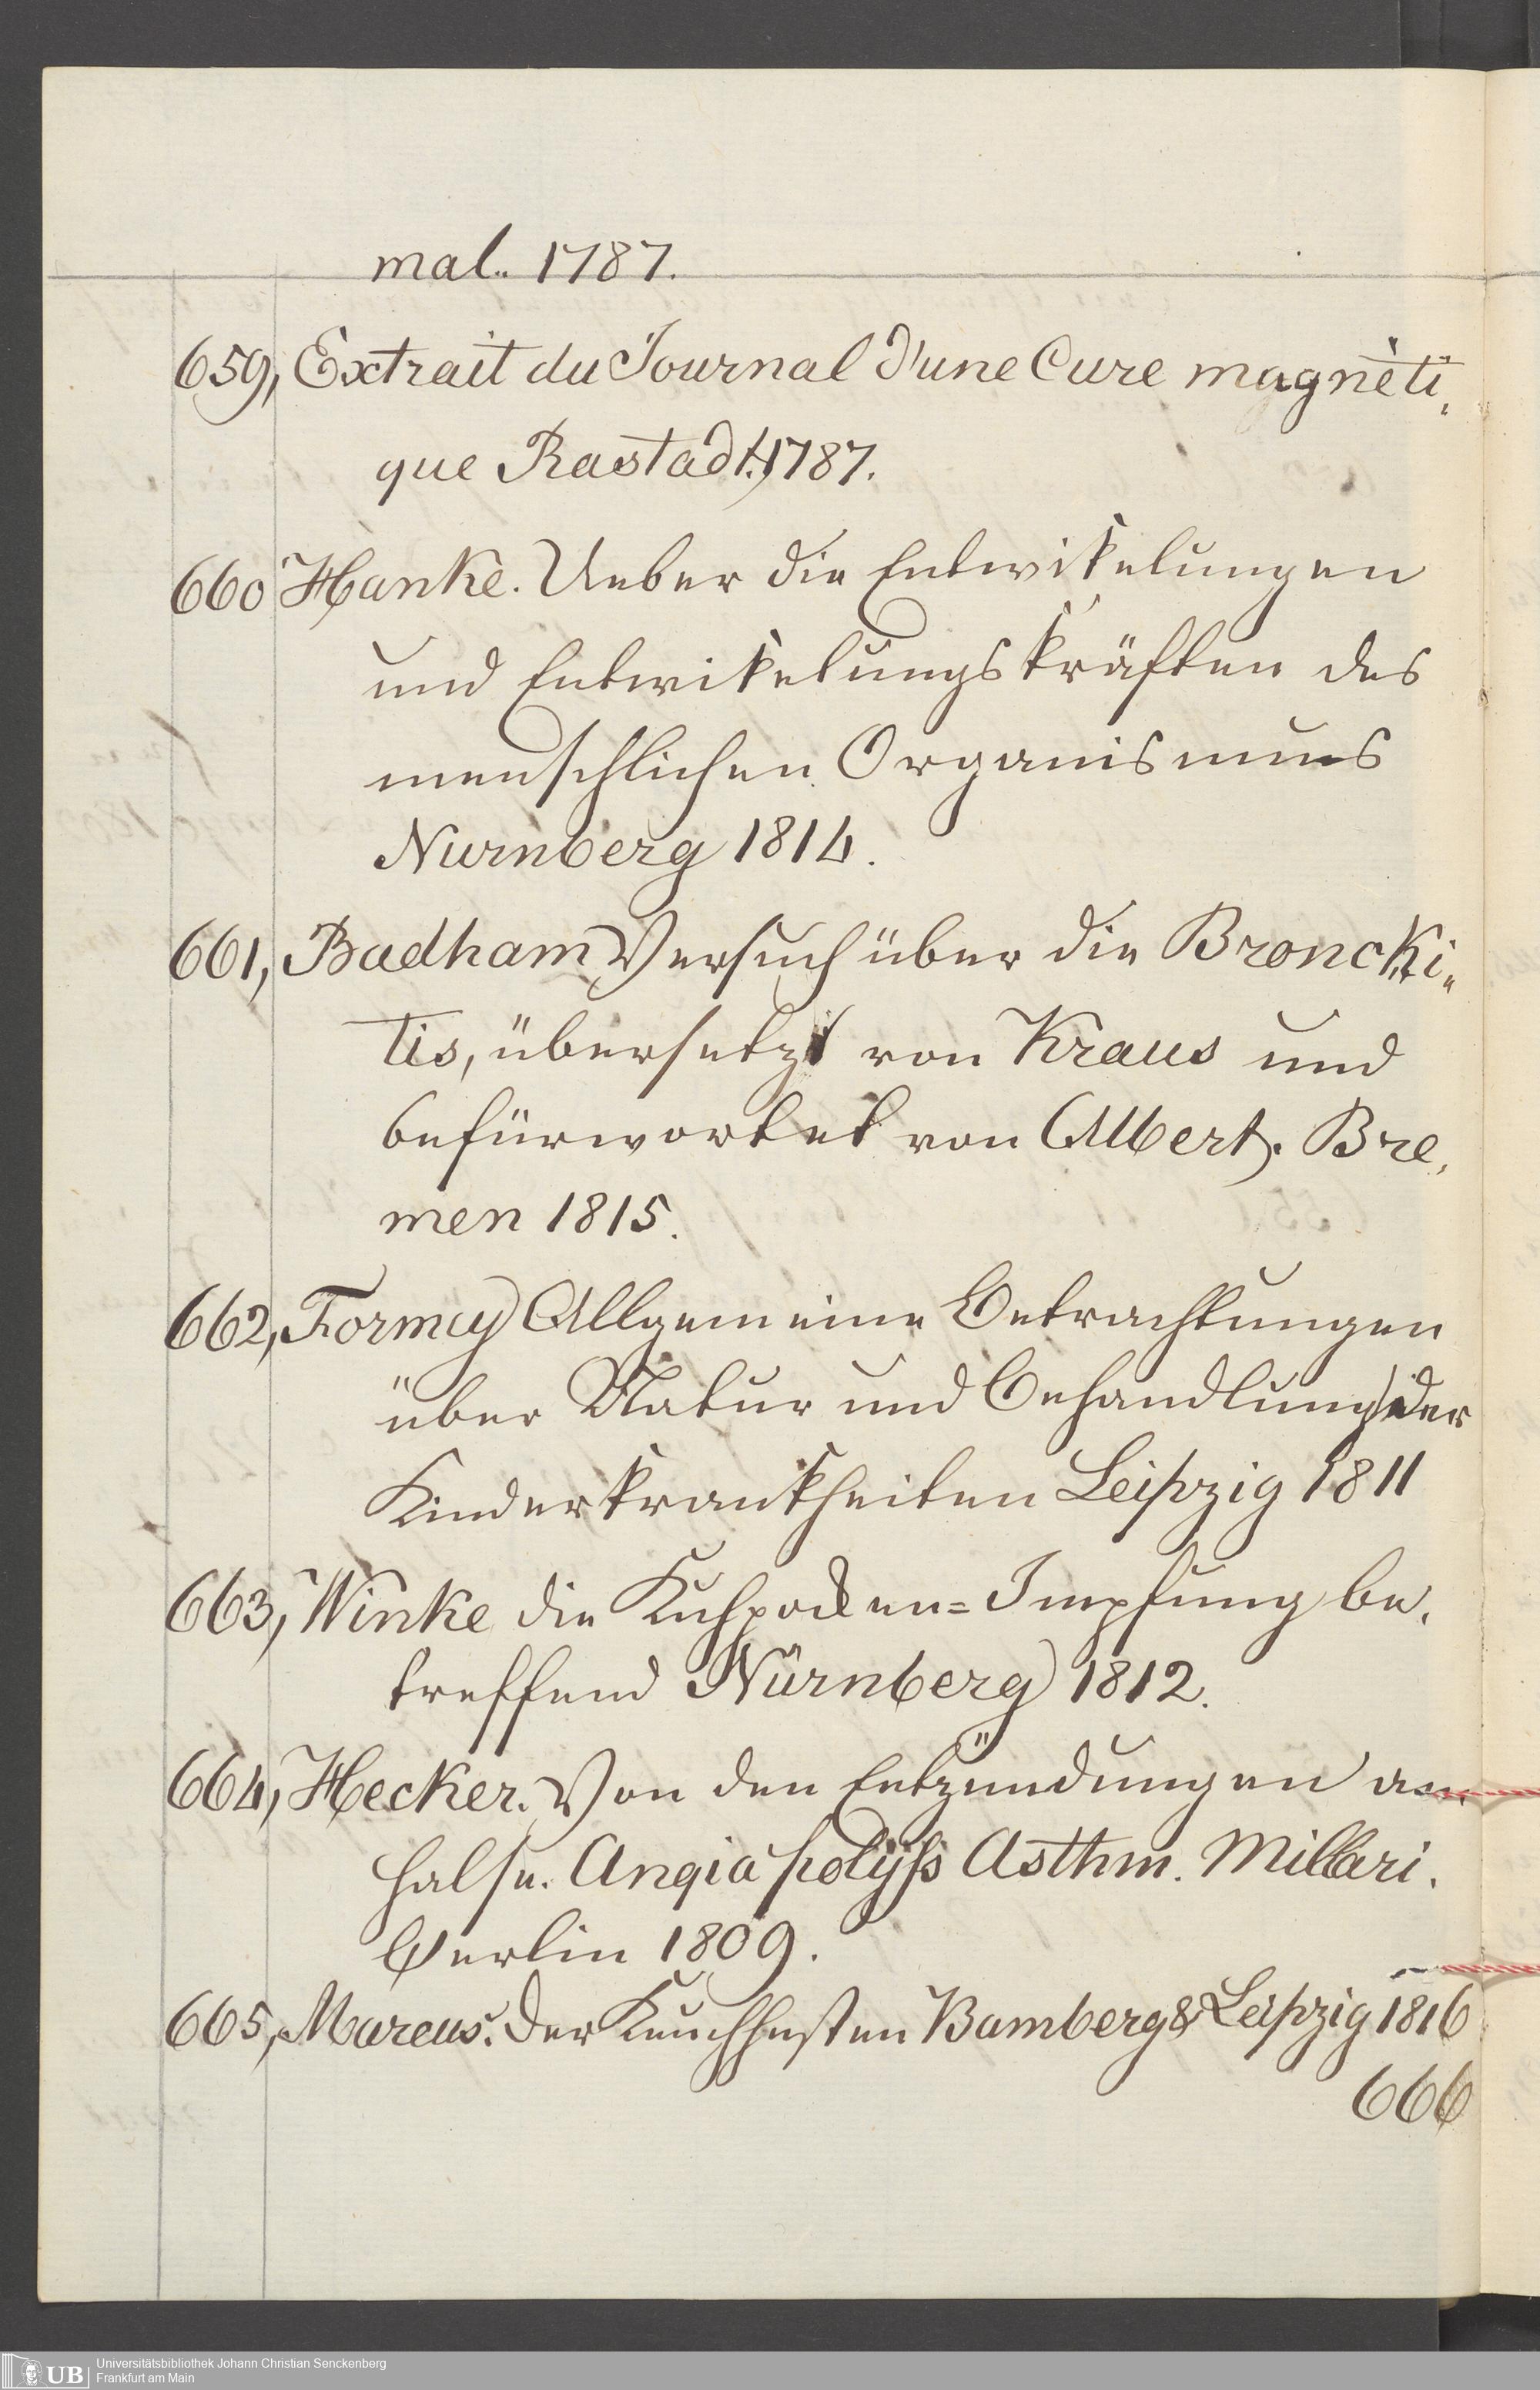 mal.. 1787.
659, Extrait du Journal d'une Cure magnèti,
que Rastadt. 1787.
660 Hanke. Ueber die Entwikelungen
und Entwikelungskräften des
menschlichen Organismus
Nurnberg 1814.
661, Badham Versuch über die Broncki„
tis, übersetzt von Kraus und
befürwortet von Albert. Bre,
men 1815.
662, Formey Allgemeine Betrachtungen
über Natur und Behandlung der
Kinderkrankheiten Leipzig 1811
663, Winke die Kuhpocken=Impfung be,
treffend Nürnberg 1812.
664, Hecker. Von den Entzündungen am
Halse. Angia polÿß Asthm. Millari.
Berlin 1809.
665, Marcus. Der Keuchhusten Bamberg & Leipzig 1816
666
Universitätsbibliothek Johann Christian Senckenberg
Frankfurt am Main
UB